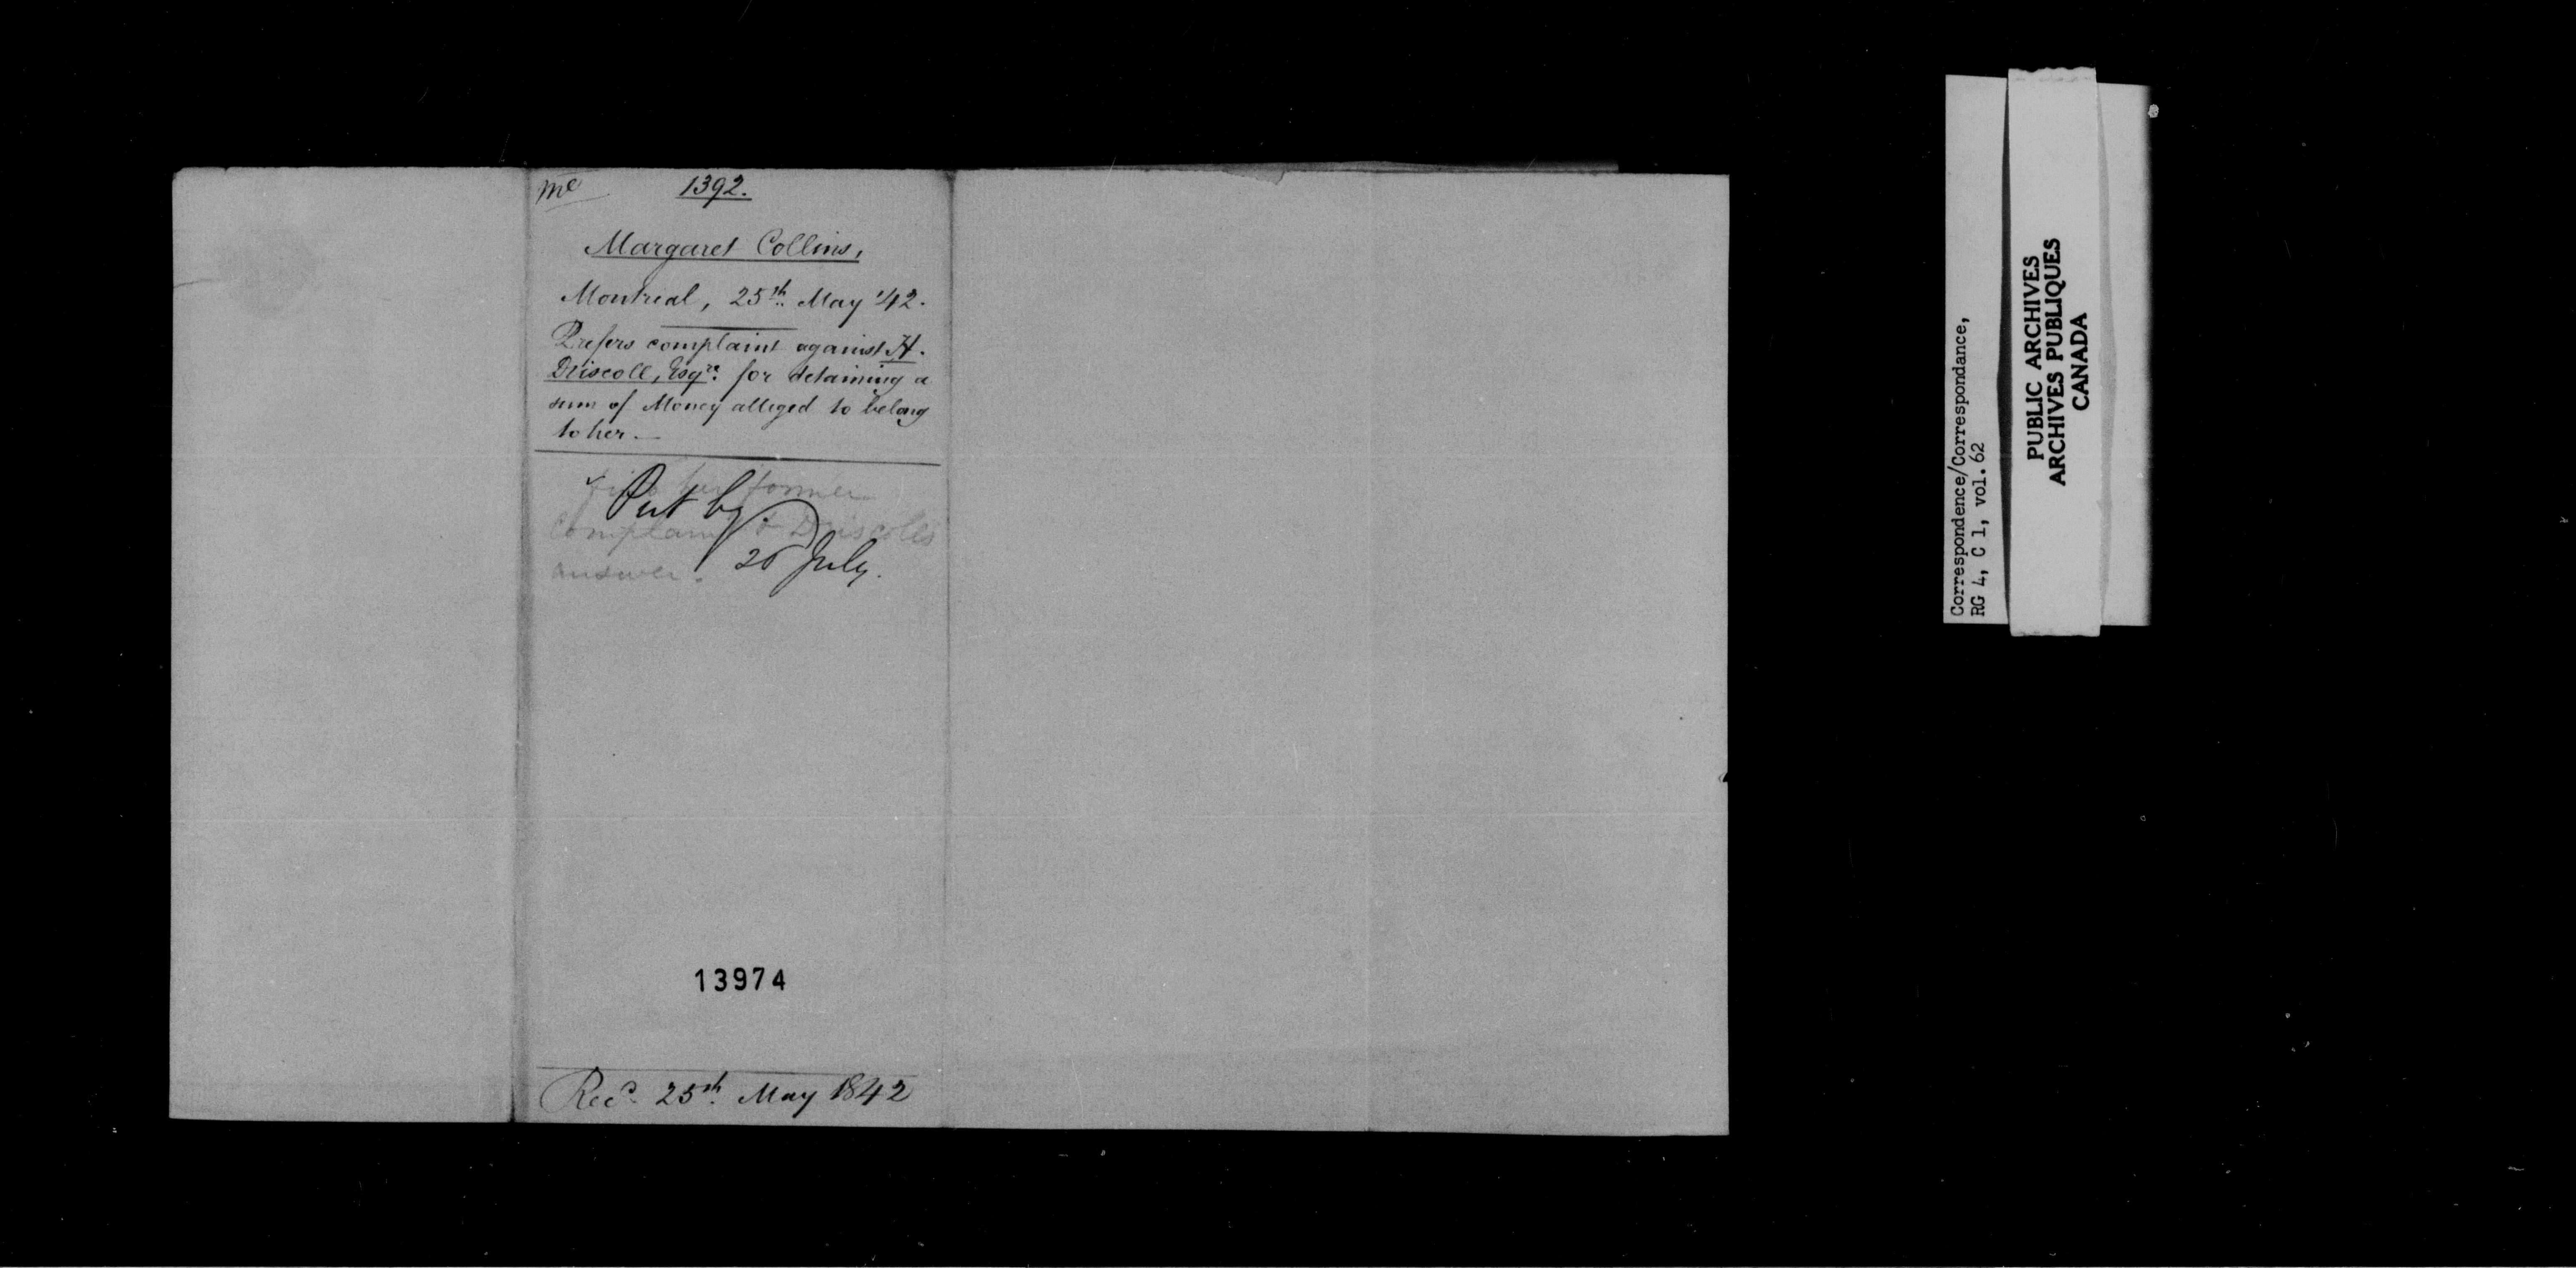 Mc 1392.
Margaret Collins,
Montreal, 25th May '42.
Prefers complaint against H.
Driscoll, Esqre. for detaining a
sum of Money alleged to belong
to her.—
her former
complaint & Driscolls
answer.
Put by.
26 July.
13974
Recd. 25th May 1842
Correspondence/Correspondance,
RG 4, C 1, vol. 62
PUBLIC ARCHIVES
ARCHIVES PUBLIQUES
CANADA